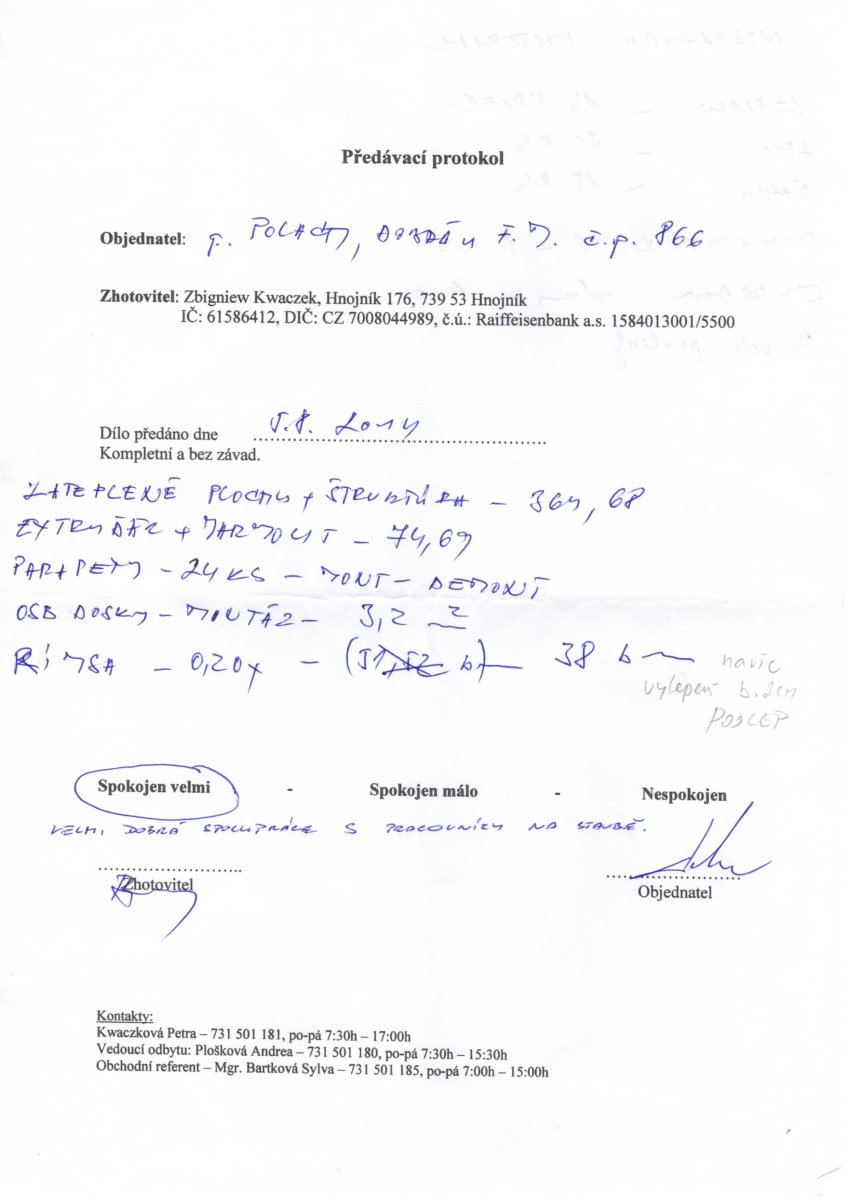 Předávací protokol
Objednatel: p. POLACH, č.p. 866
Zhotovitel: Zbigniew Kwaczek, Hnojník 176, 739 53 Hnojník
IČ: 61586412, DIČ: CZ 7008044989, č.ú.: Raiffeisenbank a.s. 1584013001/5500
Dílo předáno dne
Kompletní a bez závad.
ZATEPLENÉ PLOCHY + ŠTRUKTÚRA - 364,68
+ MARMOLIT - 74,69
PARAPETY - 24 KS - MONT - DEMONT
OSB DOSKY - MONTÁZ - 3,2 m2
RÍMSA - 0,20 x - 38 bm navíc
vylepení b. 2cm
PODCEP
Spokojen velmi - Spokojen málo - Nespokojen
VELMI DOBRÁ SPOLUPRÁCE S PRACOVNÍKY NA STAVBĚ.
Zhotovitel
Objednatel
Kontakty:
Kwaczková Petra – 731 501 181, po-pá 7:30h – 17:00h
Vedoucí odbytu: Plošková Andrea – 731 501 180, po-pá 7:30h – 15:30h
Obchodní referent – Mgr. Bartková Sylva – 731 501 185, po-pá 7:00h – 15:00h